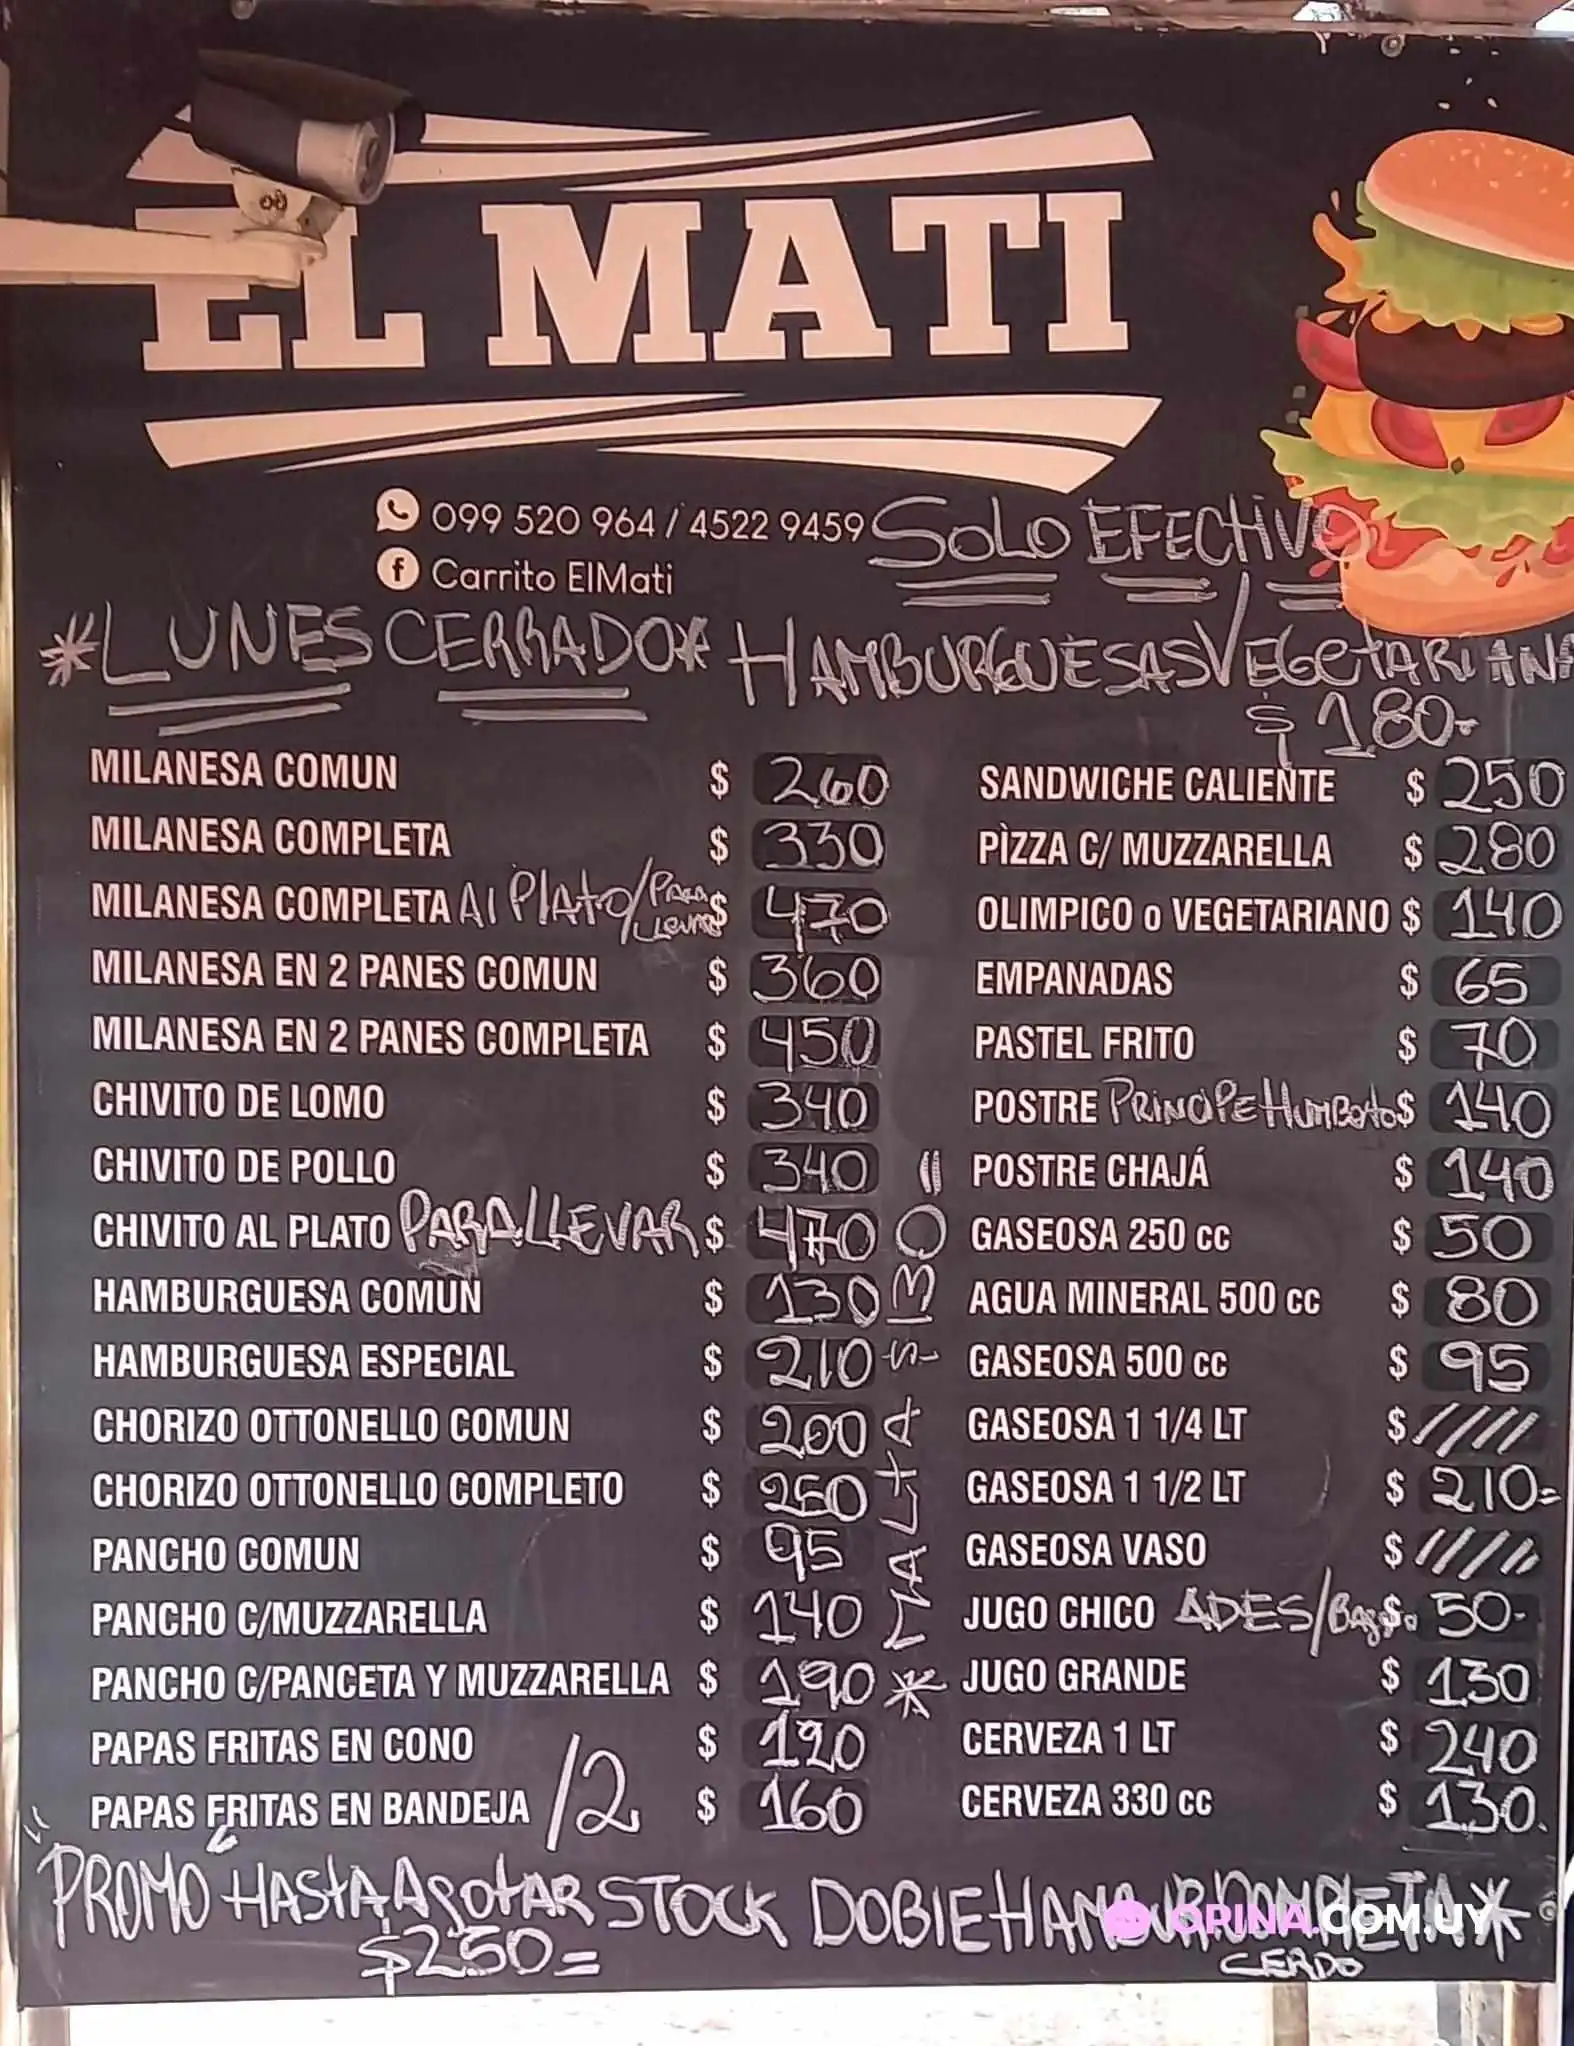 EL MATI
099 520 964 / 4522 9459 SOLO EFECTIVO
Carrito ElMati
*LUNES CERRADO* HAMBURGUESAS VEGETARIANA
$ 180-
MILANESA COMUN $ 260
MILANESA COMPLETA $ 330
MILANESA COMPLETA Al Plato/Para Llevar $ 470
MILANESA EN 2 PANES COMUN $ 360
MILANESA EN 2 PANES COMPLETA $ 450
CHIVITO DE LOMO $ 340
CHIVITO DE POLLO $ 340
CHIVITO AL PLATO PARA LLEVAR $ 470
HAMBURGUESA COMUN $ 130
HAMBURGUESA ESPECIAL $ 210
CHORIZO OTTONELLO COMUN $ 200
CHORIZO OTTONELLO COMPLETO $ 250
PANCHO COMUN $ 95
PANCHO C/MUZZARELLA $ 140
PANCHO C/PANCETA Y MUZZARELLA $ 190
PAPAS FRITAS EN CONO $ 120
PAPAS FRITAS EN BANDEJA /2 $ 160
* MALTA $ 130 =
SANDWICHE CALIENTE $ 250
PÌZZA C/ MUZZARELLA $ 280
OLIMPICO o VEGETARIANO $ 140
EMPANADAS $ 65
PASTEL FRITO $ 70
POSTRE PRINCIPE HUMBERTO $ 140
POSTRE CHAJÁ $ 140
GASEOSA 250 cc $ 50
AGUA MINERAL 500 cc $ 80
GASEOSA 500 cc $ 95
GASEOSA 1 1/4 LT $ /////
GASEOSA 1 1/2 LT $ 210=
GASEOSA VASO $ /////
JUGO CHICO ADES/ $ 50-
JUGO GRANDE $ 130
CERVEZA 1 LT $ 240
CERVEZA 330 cc $ 130.
"PROMO" HASTA AGOTAR STOCK DOBLE HAMBUR COMPLETA*
$250= CERDO
OPINA.COM.UY